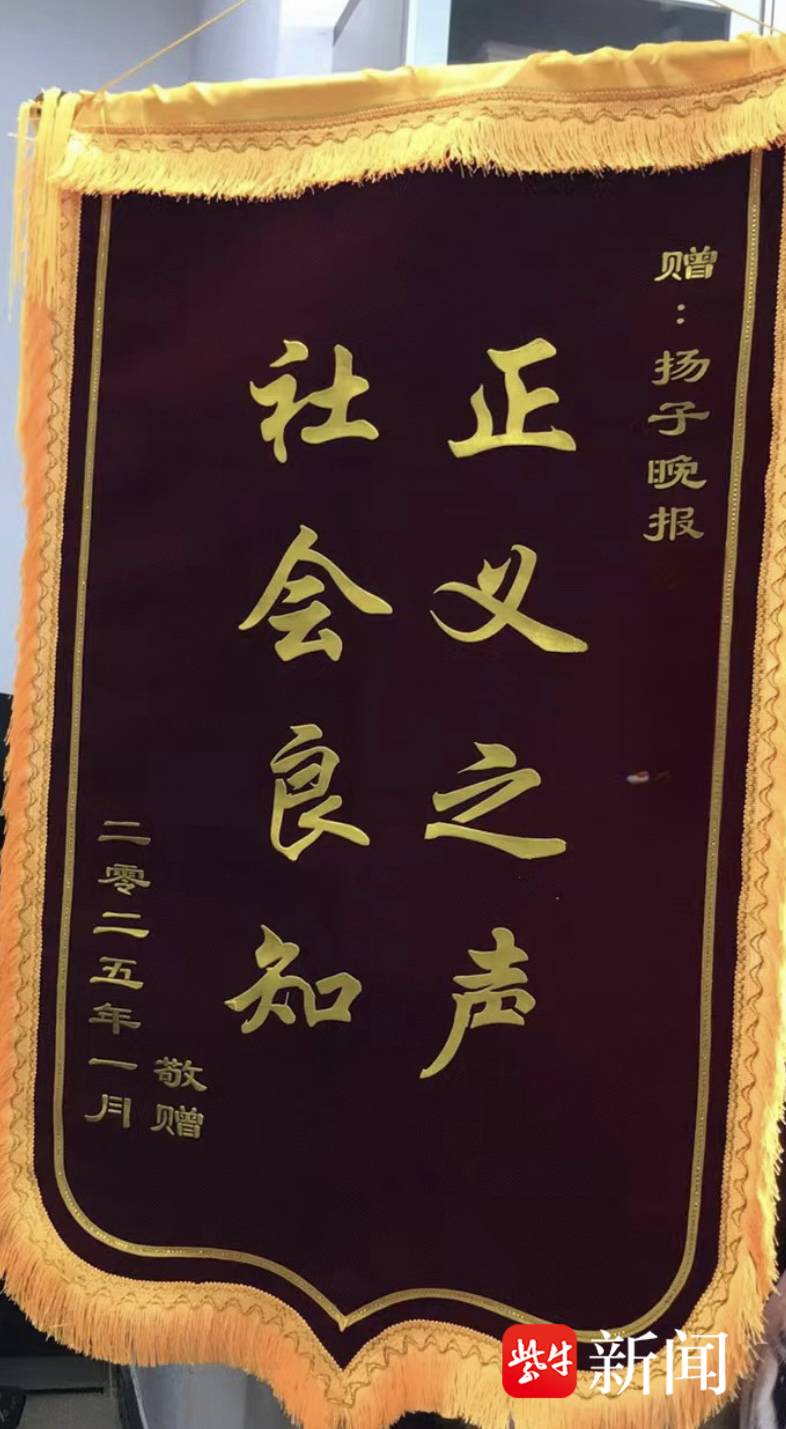 赠：扬子晚报
正义之声
社会良知
敬赠
二零二五年一月
紫牛新闻